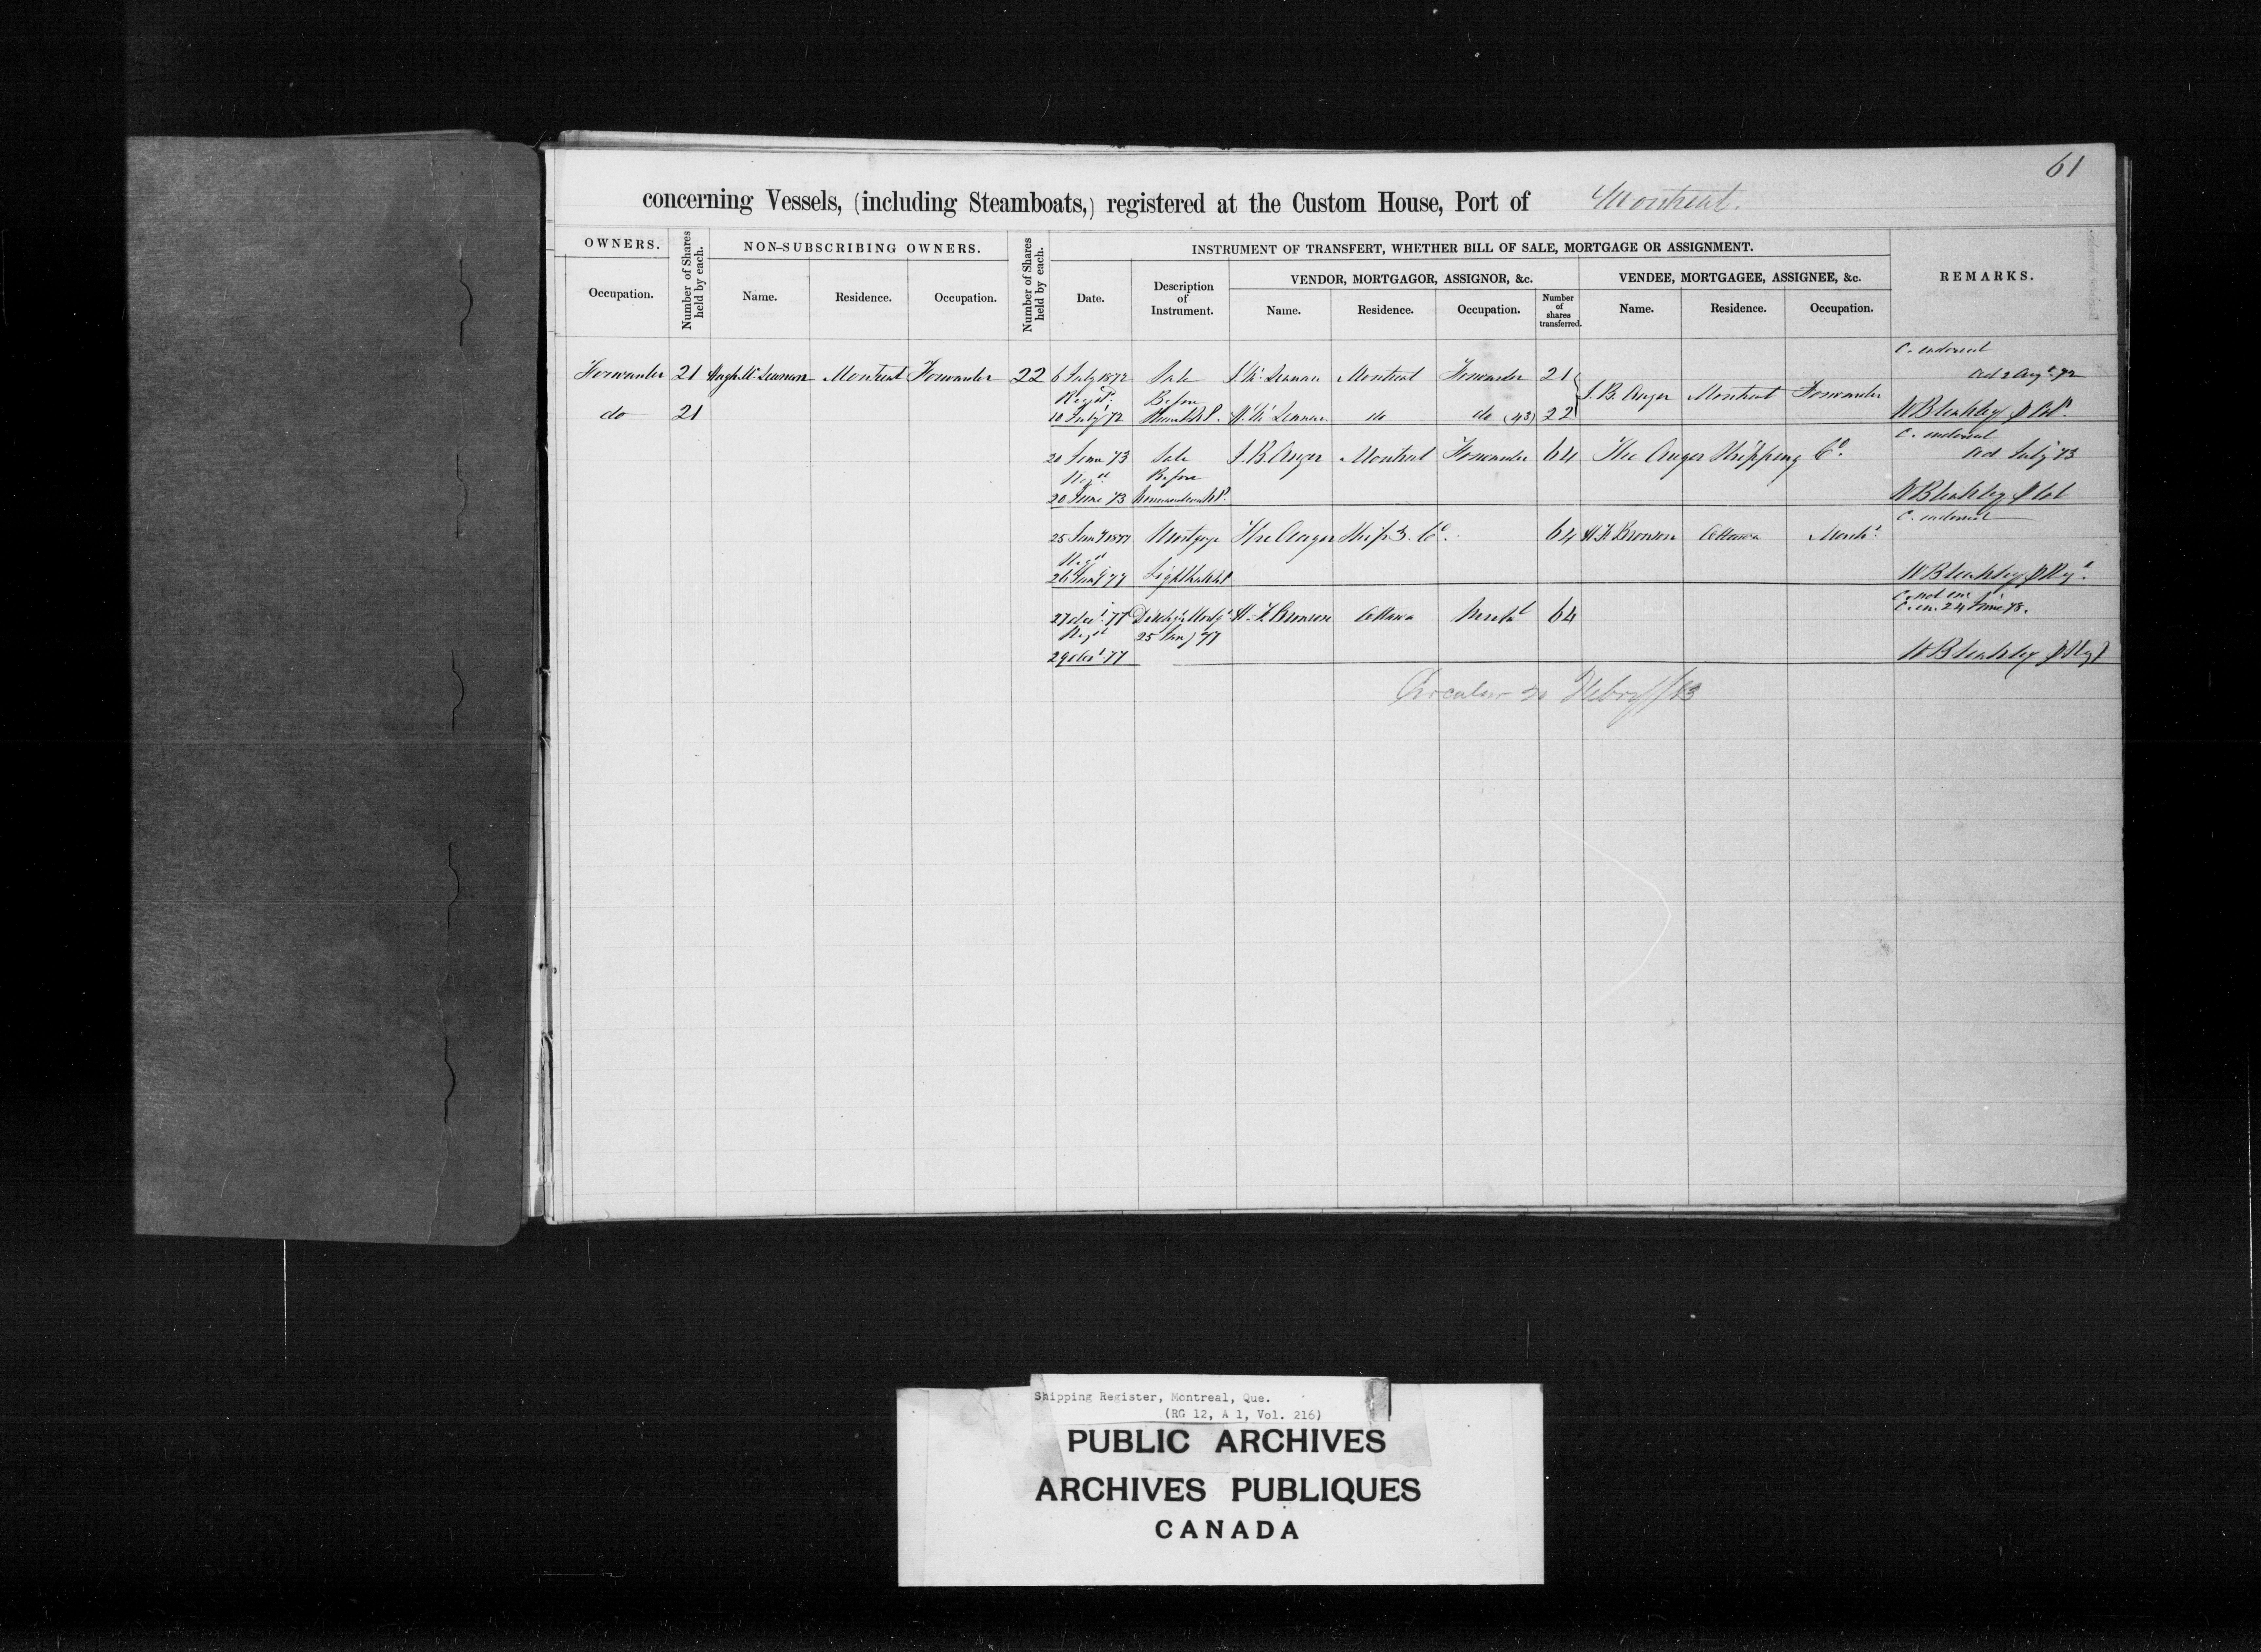 61
concerning Vessels, (including Steamboats,) registered at the Custom House, Port of Montreal.
OWNERS.
Number of Shares held by each.
NON-SUBSCRIBING OWNERS.
Number of Shares held by each.
INSTRUMENT OF TRANSFERT, WHETHER BILL OF SALE, MORTGAGE OR ASSIGNMENT.
REMARKS.
VENDOR, MORTGAGOR, ASSIGNOR, &c.
VENDEE, MORTGAGEE, ASSIGNEE, &c.
Occupation. Name. Residence. Occupation. Date. Description of Instrument. Name. Residence. Occupation. Number of shares transferred. Name. Residence. Occupation.
C. endorsed
Forwarder 21 Hugh Mc Lennan Montreal Forwarder 22 6 July 1872 Sale J. Mc Lennan Montreal Forwarder 21 ad 2 Augt 72
Regd Before J. B. Auger Montreal Forwarder
do 21 10 July 72 H. Mc Lennan do do (43) 22 W B
C. endorsed
20 June 73 Sale J. B. Auger Montreal Forwarder 64 The Auger Shipping Co. ad July 73
Regd Before
20 June 73 W B
C. endorsed
25 Jany 1877 Mortgage The Auger Ship'g. Co. 64 H F Bronson Ottawa Merch't
Regd
26 Jany 77 W B
C. not en.
C. en. 24 June 78.
27 Decr 77 Dischge Mortg H. F. Bronson Ottawa Mercht 64
Regd 25 Jany 77
29 Decr 77 W B
Circular 20 Febry/83
Shipping Register, Montreal, Que.
(RG 12, A 1, Vol. 216)
PUBLIC ARCHIVES
ARCHIVES PUBLIQUES
CANADA